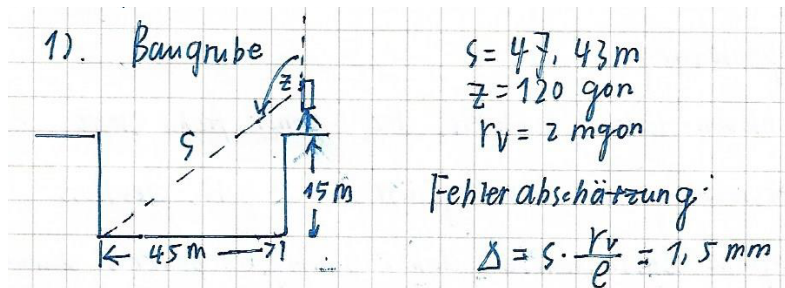 1). Baugrube
z
S
15 m
45 m
s = 47,43 m
z = 120 gon
rv = 2 mgon
Fehlerabschätzung:
Δ = s · rv/ρ = 1,5 mm